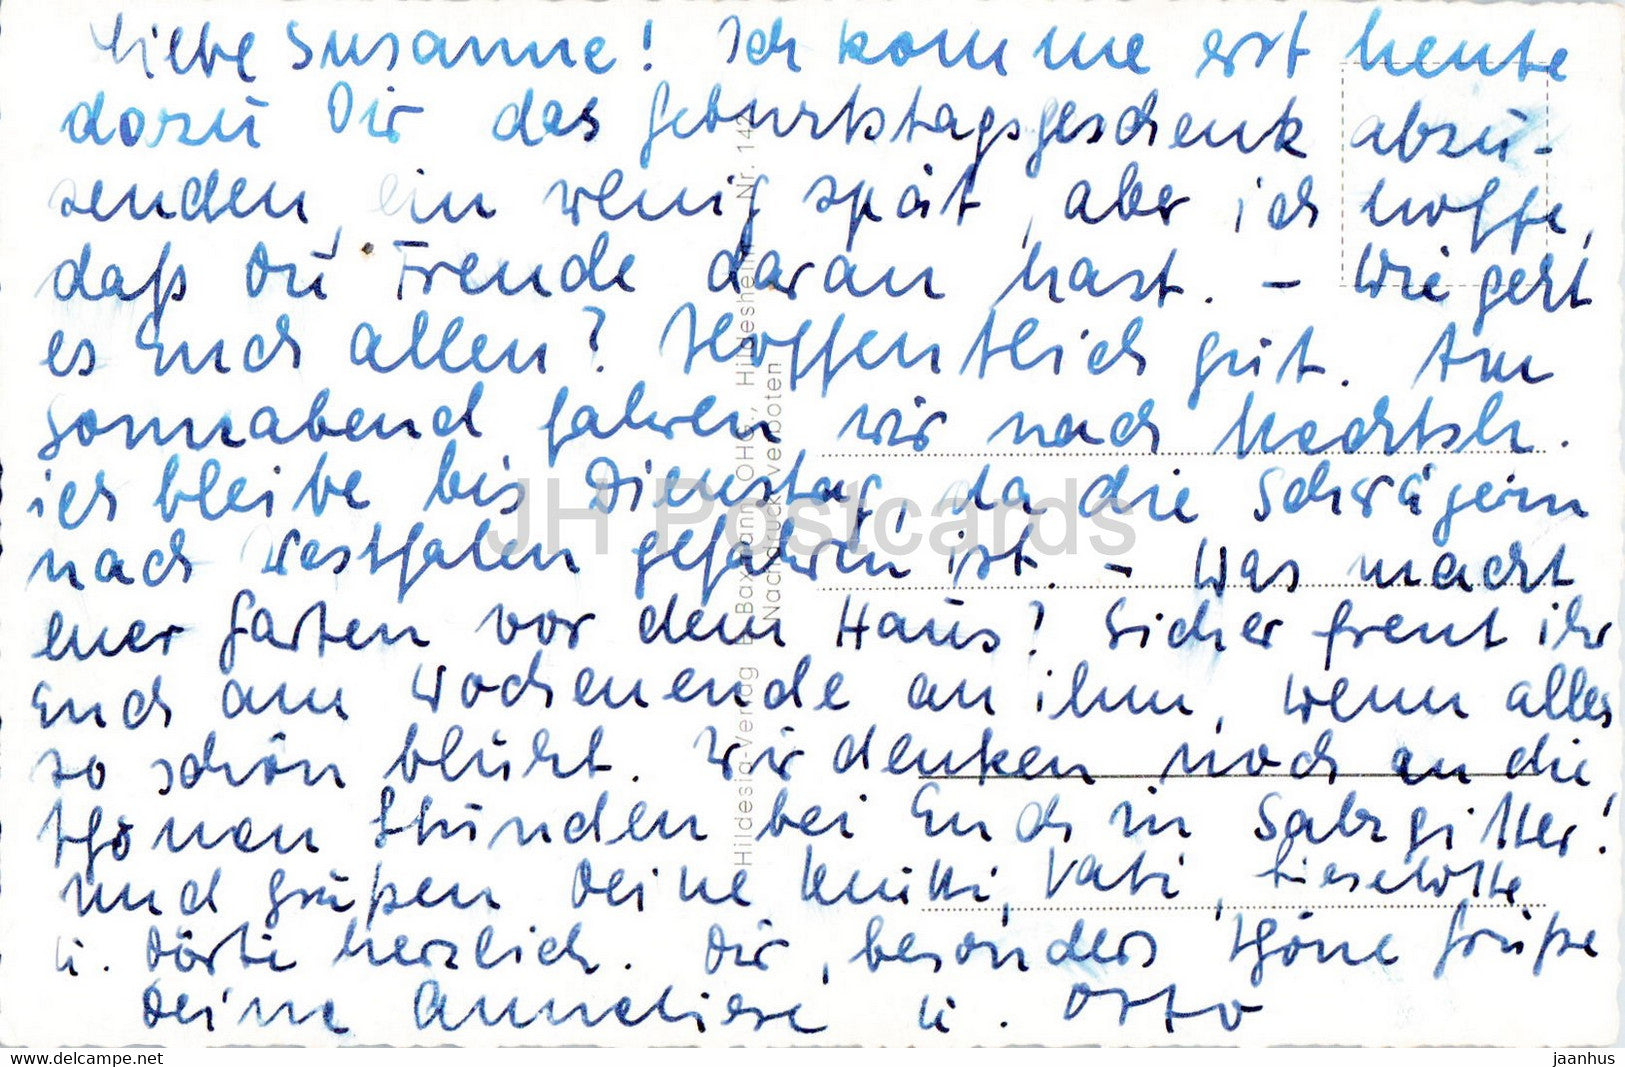 Liebe Susanne! Ich komme erst heute
dazu Dir das Geburtstagsgeschenk abzu-
senden, ein wenig spät, aber ich hoffe,
daß Du Freude daran hast. – Wie geht
es Euch allen? Hoffentlich gut. Am
Sonnabend fahren wir nach
ich bleibe bis Dienstag, da die Schwägerin
nach Westfalen gefahren ist. – Was macht
euer Garten vor dem Haus? Sicher freut ihr
Euch am Wochenende an ihm, wenn alles
so schön blüht. Wir denken noch an die
schönen Stunden bei Euch in Salzgitter!
Und grüßen Deine Mutti, Vati, Lieselotte
u. Dörti herzlich. Dir, besonders schöne Grüße
Deine Anneliese u. Otto
Hildesia-Verlag B. Baxmann OHG., Hildesheim Nr. 142
Nachdruck verboten
JH Postcards
www.delcampe.net
jaanhus